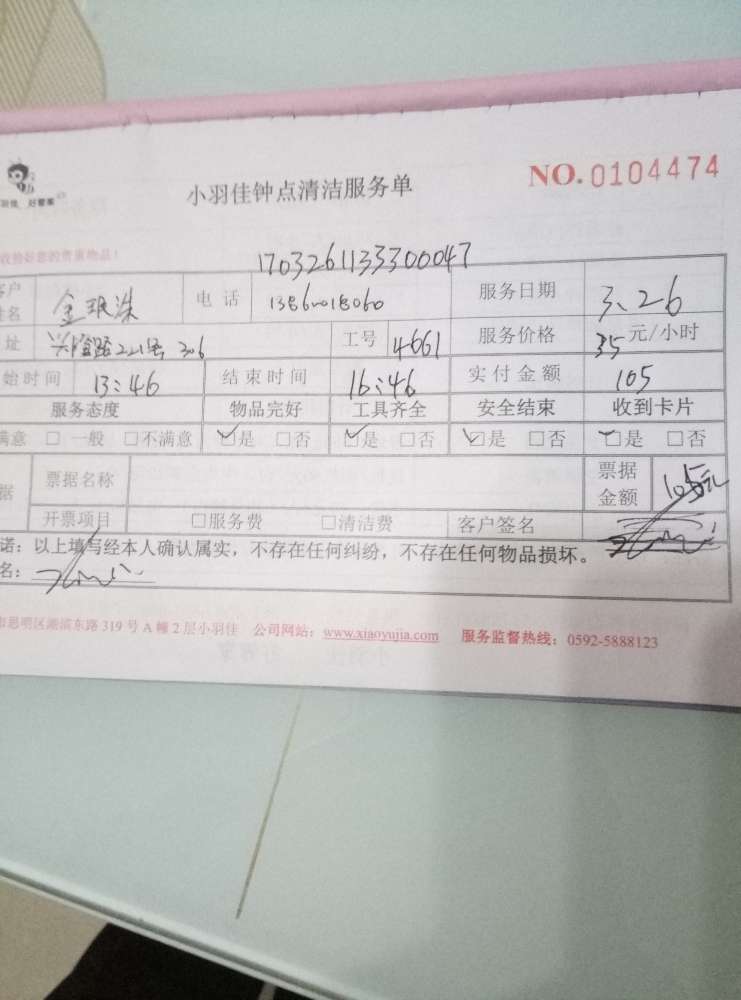 小羽佳钟点清洁服务单
NO.0104474
羽佳 好管家
收拾好您的贵重物品!
1703261133300047
客户姓名 金珉洙 电话 13860018060 服务日期 3.26
址 兴隆路221号 306 工号 4661 服务价格 35元/小时
始时间 13:46 结束时间 16:46 实付金额 105
服务态度 物品完好 工具齐全 安全结束 收到卡片
满意 □ 一般 □不满意 ☑是 □否 ☑是 □否 ☑是 □否 ☑是 □否
据 票据名称 票据金额 105元
开票项目 □服务费 □清洁费 客户签名
诺:以上填写经本人确认属实,不存在任何纠纷,不存在任何物品损坏。
名:
市思明区湖滨东路319号A幢2层小羽佳 公司网站:www.xiaoyujia.com 服务监督热线:0592-5888123